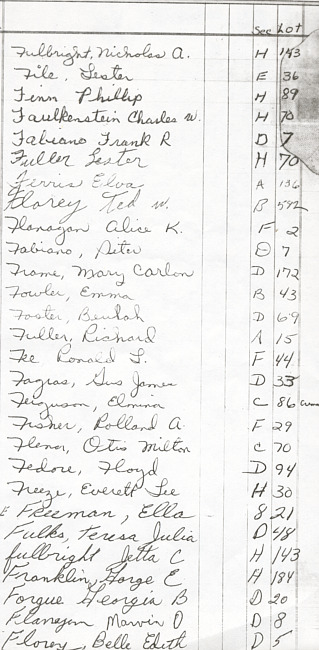 Sec Lot
Fulbright, Nicholas A. H 143
File, Lester E 36
Finn Phillip H 89
Faulkenstein Charles W. H 70
Fabiano Frank R D 7
Fuller Lester H 70
Ferris Elva A 136
Florey Ted W. B 542
Flanagan Alice K. F 2
Fabiano, Peter D 7
Frame, Mary Carlon D 172
Fowler, Emma B 43
Foster, Beulah D 69
Fuller, Richard A 15
Fee Ronald L. F 44
Fagras, Gus James D 33
Ferguson, Elmina C 86
Fisher, Rolland A. F 29
Flenor, Otis Milton C 70
Fedore, Floyd D 94
Freeze, Everett Lee H 30
Freeman, Ella 8 21
Fulks, Teresa Julia D 48
Fulbright Jetta C H 143
Franklin, Gorge E H 184
Forgue Georgia B D 20
Flanagan Marvin O D 8
Florey, Belle Edith D 5